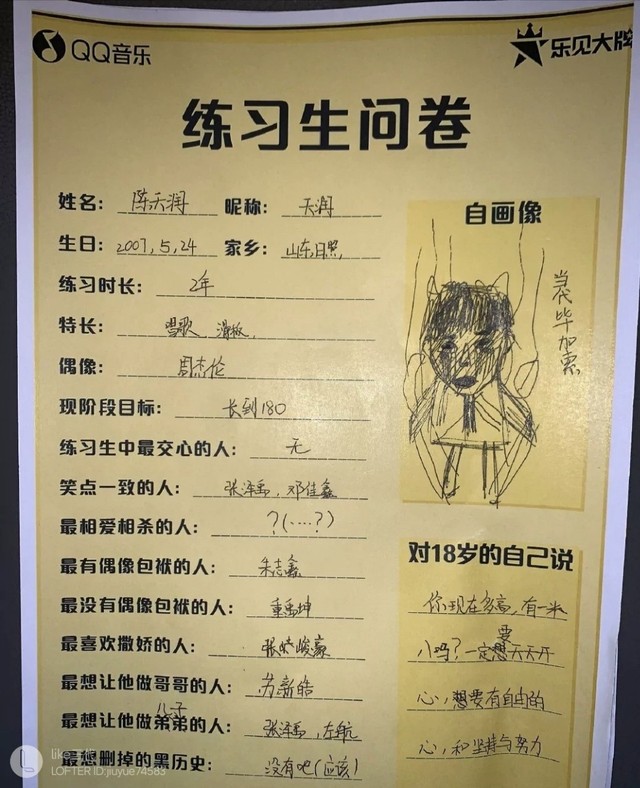 QQ音乐
乐见大牌
练习生问卷
姓名：陈天润 昵称：天润
生日：2007,5,24 家乡：山东日照
练习时长：2年
特长：唱歌、滑板
偶像：周杰伦
现阶段目标：长到180
练习生中最交心的人：无
笑点一致的人：张泽禹，邓佳鑫
最相爱相杀的人：?(····?)
最有偶像包袱的人：朱志鑫
最没有偶像包袱的人：童禹坤
最喜欢撒娇的人：张峻豪
最想让他做哥哥的人：苏新皓
最想让他做弟弟的人：张泽禹，左航
儿子
最想删掉的黑历史：没有吧（应该）
自画像
当代毕加索
对18岁的自己说
你现在多高，有一米
八吗？一定要想天天开
心，想要有自由的
心，和坚持与努力
like
LOFTER ID:jiuyue74583